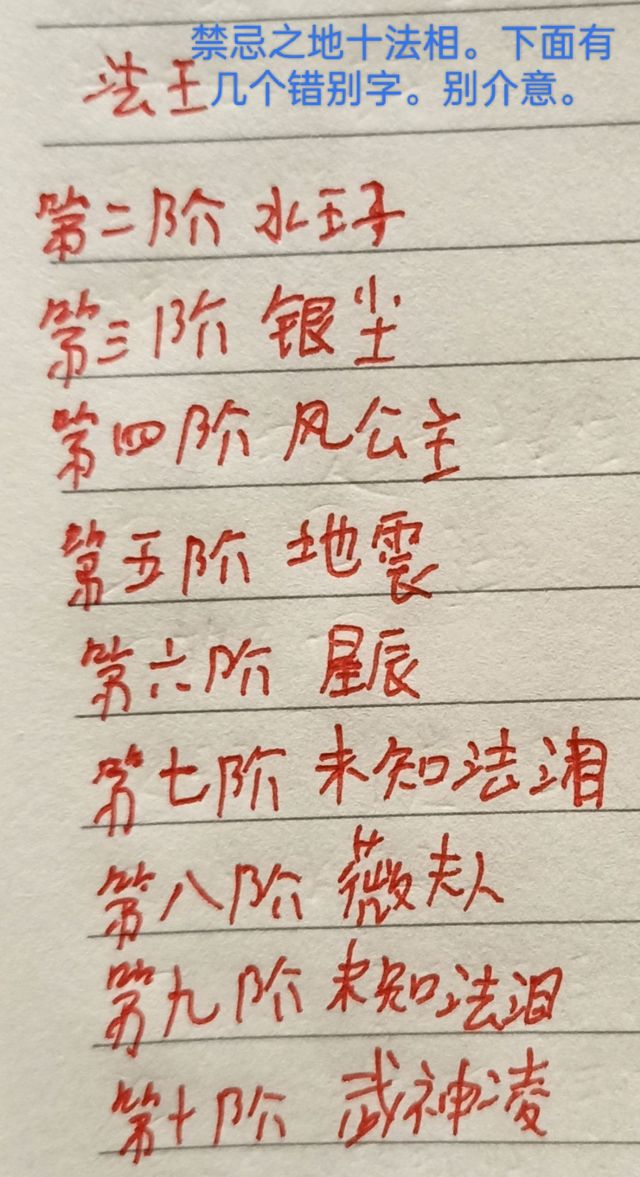 禁忌之地十法相。下面有
几个错别字。别介意。
法王
第二阶 水王子
第三阶 银尘
第四阶 风公主
第五阶 地震
第六阶 星辰
第七阶 未知法湘
第八阶 薇夫人
第九阶 未知法泪
第十阶 武神凌